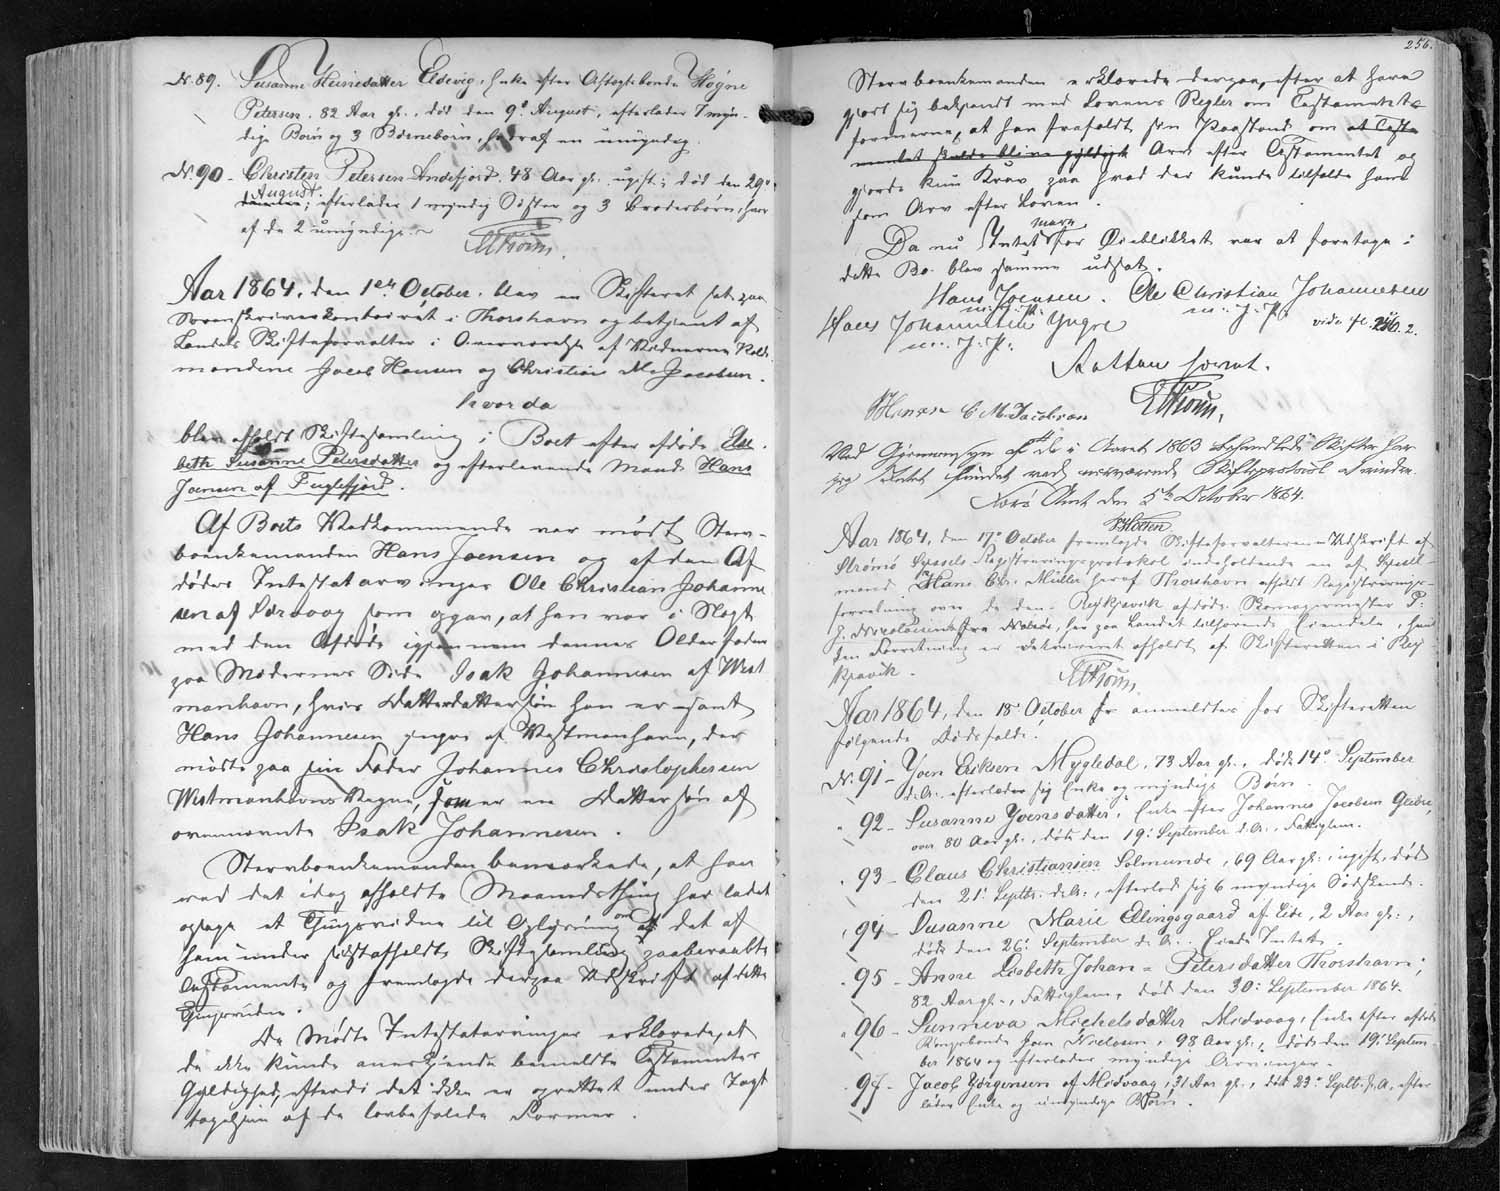 N. 89. Susanne Heinesdatter Eldevig, Enke efter Assogsbonde Høgne
Petersen, 82 Aar gl., død den 9de August, efterlader 7 myn-
dige Børn og 3 Børnebørn, hvoraf en umyndig.
N. 90 - Christen Petersen Andefjord, 48 Aar gl., ugift, død den 29de
August, efterlader 1 myndig Søster og 3 Broderbørn, hvor
af de 2 umyndige.
Aar 1864, den 1ste October, blev en Skifteret sat paa
Sorenskriverkontoiret i Thorshavn og betjent af
Landets Skifteforvalter i Overværelse af Vidnerne
mændene Jacob Hansen og Christian M. Jacobsen.
hvorda
blev afholdt Skiftesamling i Boet efter afdøde Else
beth Susanne Petersdatter og efterlevende Mand Hans
Joensen af Fuglefjord.
Af Boets Vedkommende var mødt Sterv-
boenkemanden Hans Joensen og af den Af
dødes Intestatarvinger Ole Christian Johanne
sen af Sørvaag som opgav, at han var i Slægt
med den Afdøde igjennem dennes Olderfader
paa Moderens Side Isak Johannesen af West
manhavn, hvis Datterdattersøn han er samt
Hans Johannesen yngre af Vestmanhavn, der
mødte paa sin Fader Johannes Christophersen
Westmanhavns Vegne, som er en Dattersøn af
ovennævnte Isak Johannesen.
Stervboenkemanden bemærkede, at han
ved det idag afholdte Maanedsthing har ladet
optage et Thingsvidne til Oplysning om det af
ham under sidstafholdte Skiftesamling paaberaabte
Testamente og fremlagde derpaa Udskrift af dette
Thingsvidne.
De mødte Intestatarvinger erklærede, at
de ikke kunde anerkjende bemeldte Testamentes
Gyldighed, efterdi det ikke er oprettet under Iagt
tagelsen af de lovbefalede Former.
256.
Stervboenkemanden erklærede derpaa, efter at have
gjort sig bekjendt med Lovens Regler om Testaments
formerne, at han frafaldt sin Paastand om at Testa
mentet skulde blive gyldigt Arv efter Testamentet og
gjorde kun Krav paa hvad der kunde tilfalde ham
som Arv efter Loven.
Da nu Intet mere for Øieblikket var at foretage i
dette Bo blev samme udsat.
Hans Joensen. Ole Christian Johannesen
m. f. P. m. f. P.
Hans Johannesen Yngre vide fl. 256. 2.
m. f. P.
Retten hævet.
JHansen C M Jacobsen
Ved Gjennemsyn af de i Aaret 1863 behandlede Skifter har
jeg Intet fundet ved nærværende Skifteprotocol at erindre.
Færø Amt den 5te October 1864.
Aar 1864, den 17de October fremlagde Skifteforvalteren Udskrift af
Strømø Syssels Registreringsprotokol indeholdende en af Syssel-
mand Hans Chr. Müller heraf Thorshavn afholdt Registrerings-
forretning over de den i Reykjavik afdøde Skomagermester P.
fra Nolsø, her paa Landet tilhørende Eiendele, hvil
ken Forretning er afholdt af Skifteretten i Rey
kjavik.
Aar 1864, den 18de October er anmeldtes for Skifteretten
følgende Dødsfald:
N. 91 - Joen Eriksen Mygledal, 73 Aar gl., døde 14de September
d. A. efterlader sig Enke og myndige Børn.
" 92 - Susanne Joensdatter, Enke efter Johannes Jacobsen Glibre,
over 80 Aar gl., døde den 19de September d. A., Fattiglem.
" 93 - Claus Christiansen Solmunde, 69 Aar gl., ugift, død
den 21de Septbr. d. A., efterlod sig 6 myndige Sødskende.
" 94 - Susanne Marie Ellingsgaard af Eide, 2 Aar gl.,
døde den 26de September d. A. Eiede Intet.
" 95 - Anne Lisbeth Johan = Petersdatter Thorshavn,
82 Aar gl., Fattiglem, død den 30de September 1864.
" 96 - Sunneva Michelsdatter Midvaag, Enke efter afdøde
Kongsbonde Joen Nielsen, 98 Aar gl., døde den 19de Septem-
ber 1864 og efterlader myndige Arvinger.
" 97 - Jacob Jørgensen af Midvaag, 31 Aar gl., død 23de Septbr. d. A. efter
lader Enke og umyndige Børn.